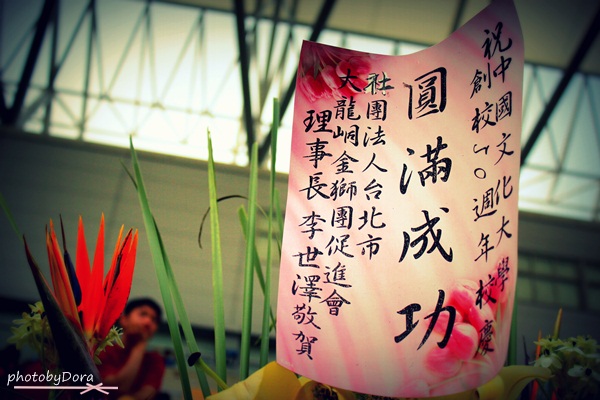 祝中國文化大學
創校50週年校慶
圓滿成功
社團法人台北市
大龍峒金獅團促進會
理事長李世澤敬賀
photobyDora